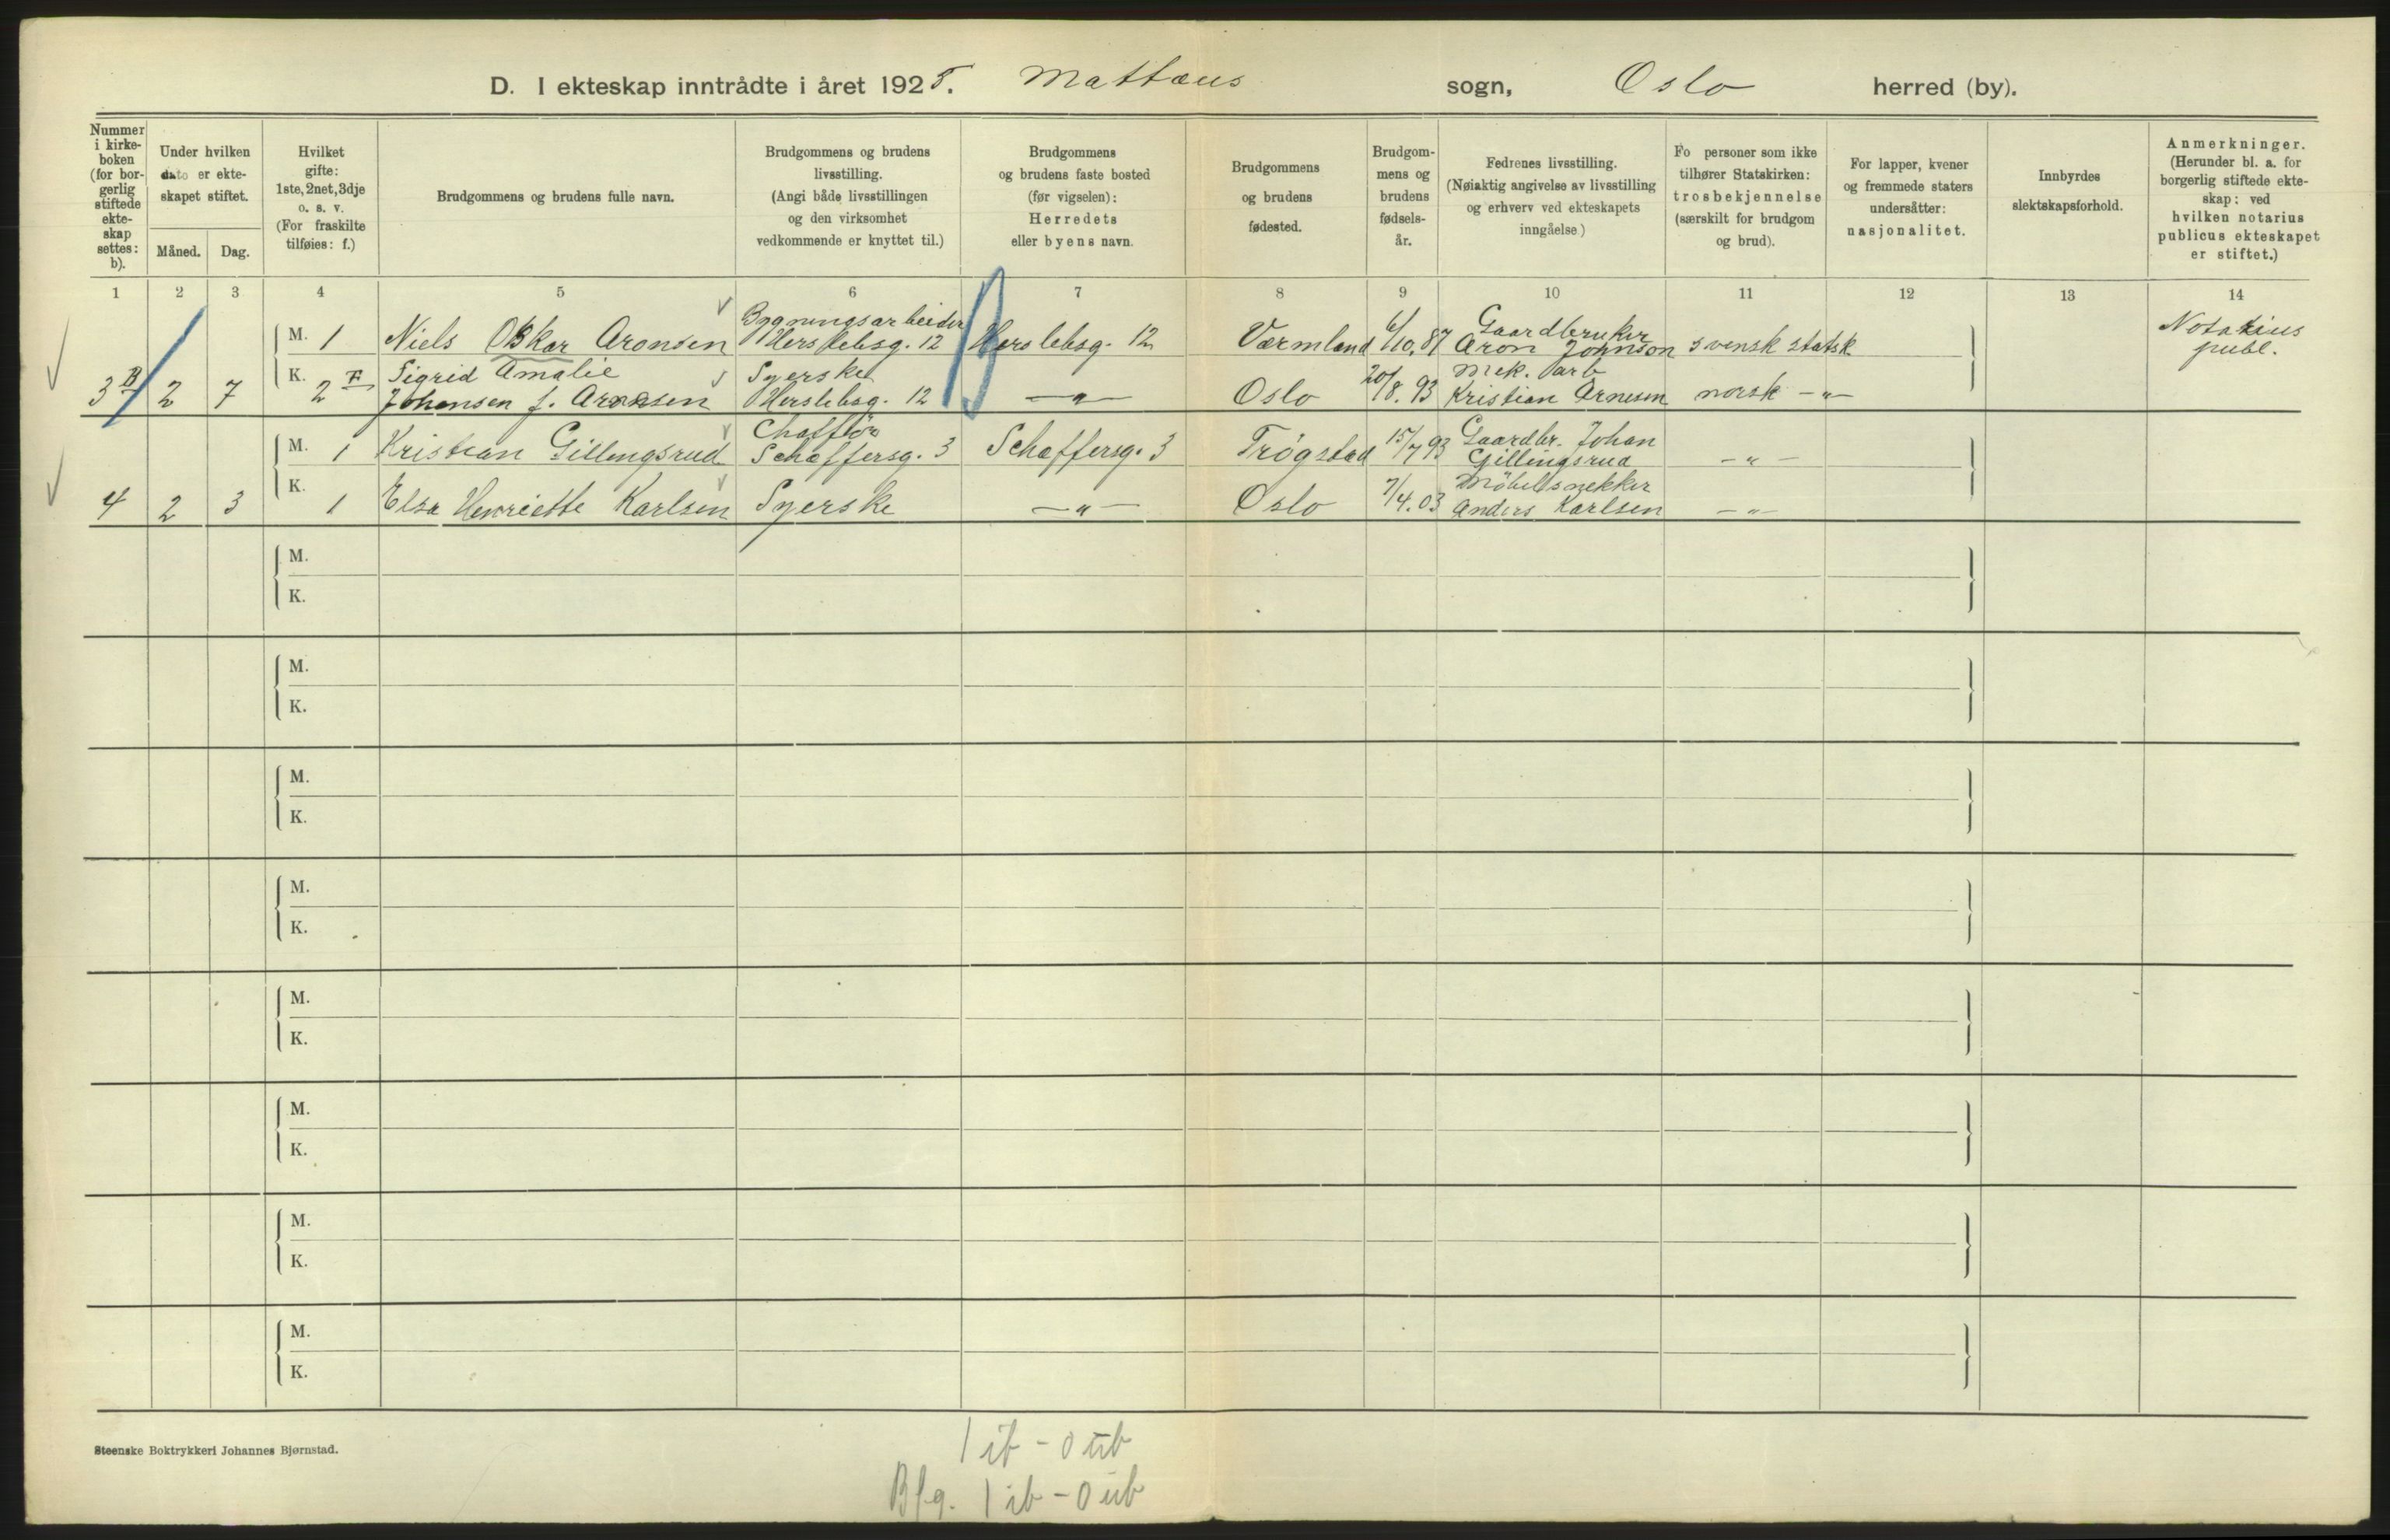 D. I ekteskap inntrådte i året 1925. Mattæus sogn, Oslo herred (by).
Nummer i kirkeboken (for borgerlig stiftede ekteskap settes: b).
Under hvilken dato er ekteskapet stiftet.
Måned. Dag.
Hvilket gifte: 1ste, 2net, 3dje o. s. v. (For fraskilte tilføies: f.)
Brudgommens og brudens fulle navn.
Brudgommens og brudens livsstilling. (Angi både livsstillingen og den virksomhet vedkommende er knyttet til.)
Brudgommens og brudens faste bosted (før vigselen): Herredets eller byens navn.
Brudgommens og brudens fødested.
Brudgommens og brudens fødselsår.
Fedrenes livsstilling. (Nøiaktig angivelse av livsstilling og erhverv ved ekteskapets inngåelse)
Fo personer som ikke tilhører Statskirken: trosbekjennelse (særskilt for brudgom og brud).
For lapper, kvener og fremmede staters undersåtter: nasjonalitet.
Innbyrdes slektskapsforhold.
Anmerkninger. (Herunder bl. a. for borgerlig stiftede ekteskap: ved hvilken notarius publicus ekteskapet er stiftet.)
1 2 3 4 5 6 7 8 9 10 11 12 13 14
M. 1 Niels Oskar Aronsen Bygningsarbeider Herslebsg. 12 Herslebsg. 12 Værmland 6/10.87 Gaardbruker Aron Johnson svensk statsk. Notarius publ.
3 B 2 7 K. 2 F Sigrid Amalie Johansen f. Arnesen Syerske Herslebsg. 12 —"— Oslo 20/8.93 Mek. arb Kristian Arnesen norsk —"—
M. 1 Kristian Gillingsrud Chaffør Schæffersg. 3 Schæffersg. 3 Trøgstad 15/7 93 Gaardbr. Johan Gillingsrud —"—
4 2 3 K. 1 Elsa Henriette Karlsen Syerske —"— Oslo 7/4.03 Møbelsnekker Anders Karlsen —"—
M.
K.
M.
K.
M.
K.
M.
K.
M.
K.
M.
K.
M.
K.
M.
K.
Steenske Boktrykkeri Johannes Bjørnstad.
1 ib - 0 ub
Bfg. 1 ib - 0 ub